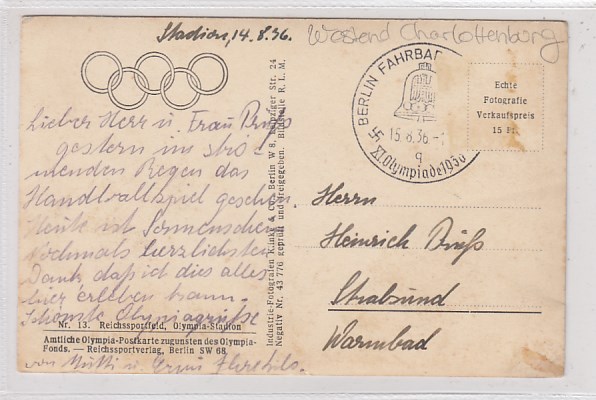 Stadion, 14.8.36.
Westend Charlottenburg
BERLIN FAHRBA
15.8.36.-
q
XI. Olympiade 1936
Echte
Fotografie
Verkaufspreis
15 Pf.
Lieber Herr u. Frau
gestern im strö-
menden Regen das
Handballspiel gesehen.
Heute ist Sonnenschein
Nochmals herzlichsten
Dank, daß ich dies alles
hier erleben kann.
Schönste Olympiagrüße
von u.
Nr. 13. Reichssportfeld, Olympia-Stadion
Amtliche Olympia-Postkarte zugunsten des Olympia-
Fonds. — Reichssportverlag, Berlin SW 68.
Industrie-Fotografen Klinke & Co., Berlin W 8, Leipziger Str. 24
Negativ Nr. 43 776 geprüft und freigegeben. Bildstelle R. L. M.
Herrn
Heinrich
Stralsund
Warmbad